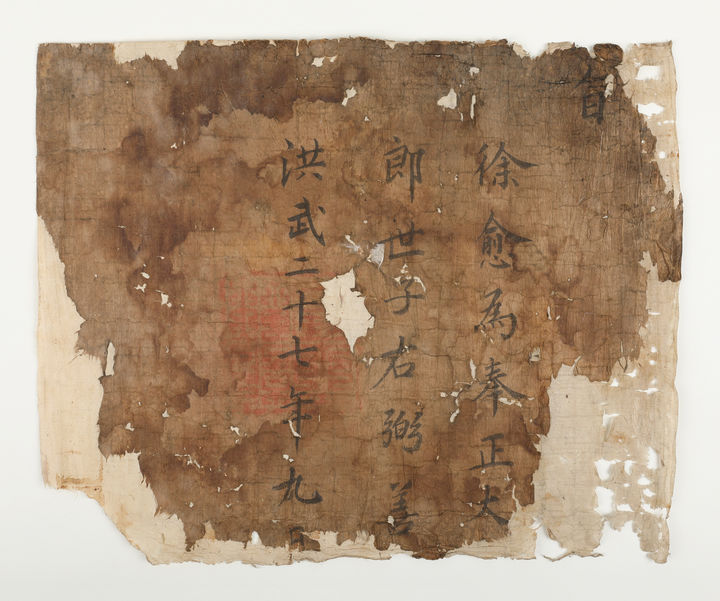 旨
徐愈為奉正大
郎世子右弼善
洪武二十七年九月